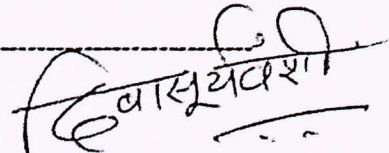 दिवासूर्यवंशी